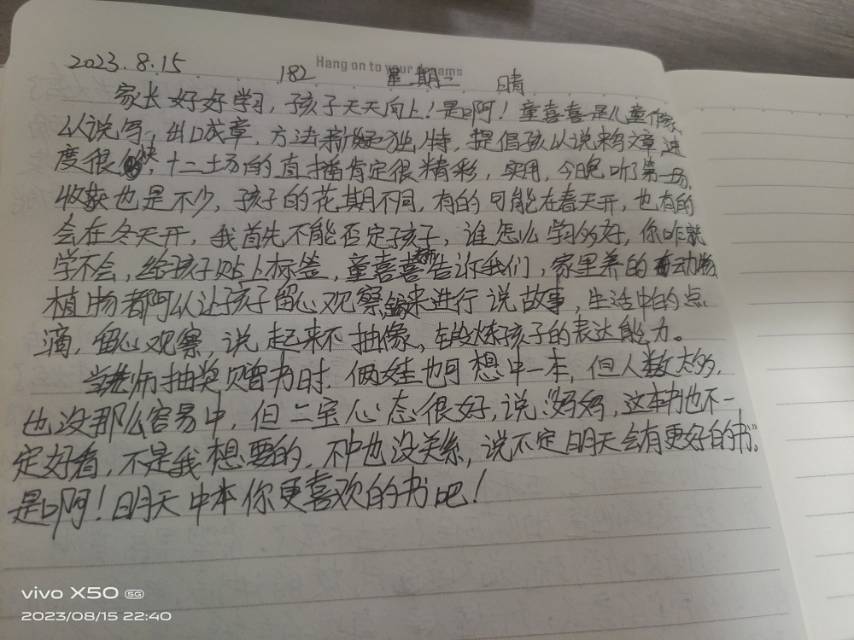 Hang on to your dreams
2023.8.15 182 星期二 晴
家长好好学习，孩子天天向上！是啊！童喜喜是儿童作家，
以说写，出口成章，方法新颖独特，提倡孩以说来写文章速
度很快，十二场的直播肯定很精彩，实用，今晚听了第一场，
收获也是不少，孩子的花期不同，有的可能在春天开，也有的
会在冬天开，我首先不能否定孩子，谁怎么学的好，你咋就
学不会，给孩子贴上标签，童喜喜告诉我们，家里养的动物
植物都阿以让孩子留心观察，来进行说故事，生活中的点
滴，留心观察，说起来不抽像，锻炼孩子的表达能力。
当老师抽奖赠书时，俩娃也想中一本，但人数太多，
也没那么容易中，但二宝心态很好，说：“妈妈，这本书也不一
定好看，不是我想要的，不中也没关系，说不定明天会有更好的书。”
是啊！明天中本你更喜欢的书吧！
vivo X50 5G
2023/08/15 22:40